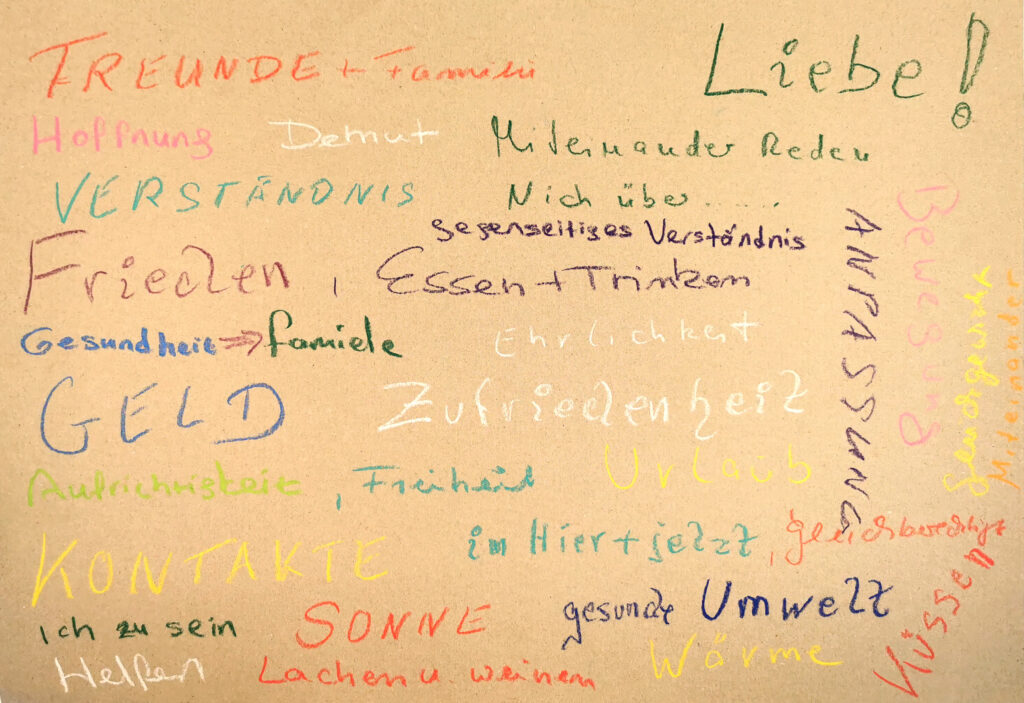 FREUNDE + Famili
Liebe!
Hoffnung
Demut
Miteinander Reden
VERSTÄNDNIS
Nich über.......
gegenseitiges Verständnis
Frieden, Essen + Trinken
Gesundheit ⇒ famiele
Ehrlichkeit
GELD
Zufriedenheit
Aufrichtigkeit, Freiheit
Urlaub
KONTAKTE
im Hier + jetzt, gleichberechtigt
ich zu sein
SONNE
gesunde Umwelt
Helfen
Lachen u. weinen
Wärme
ANPASSUNG
Bewegung
Miteinander
Küssen